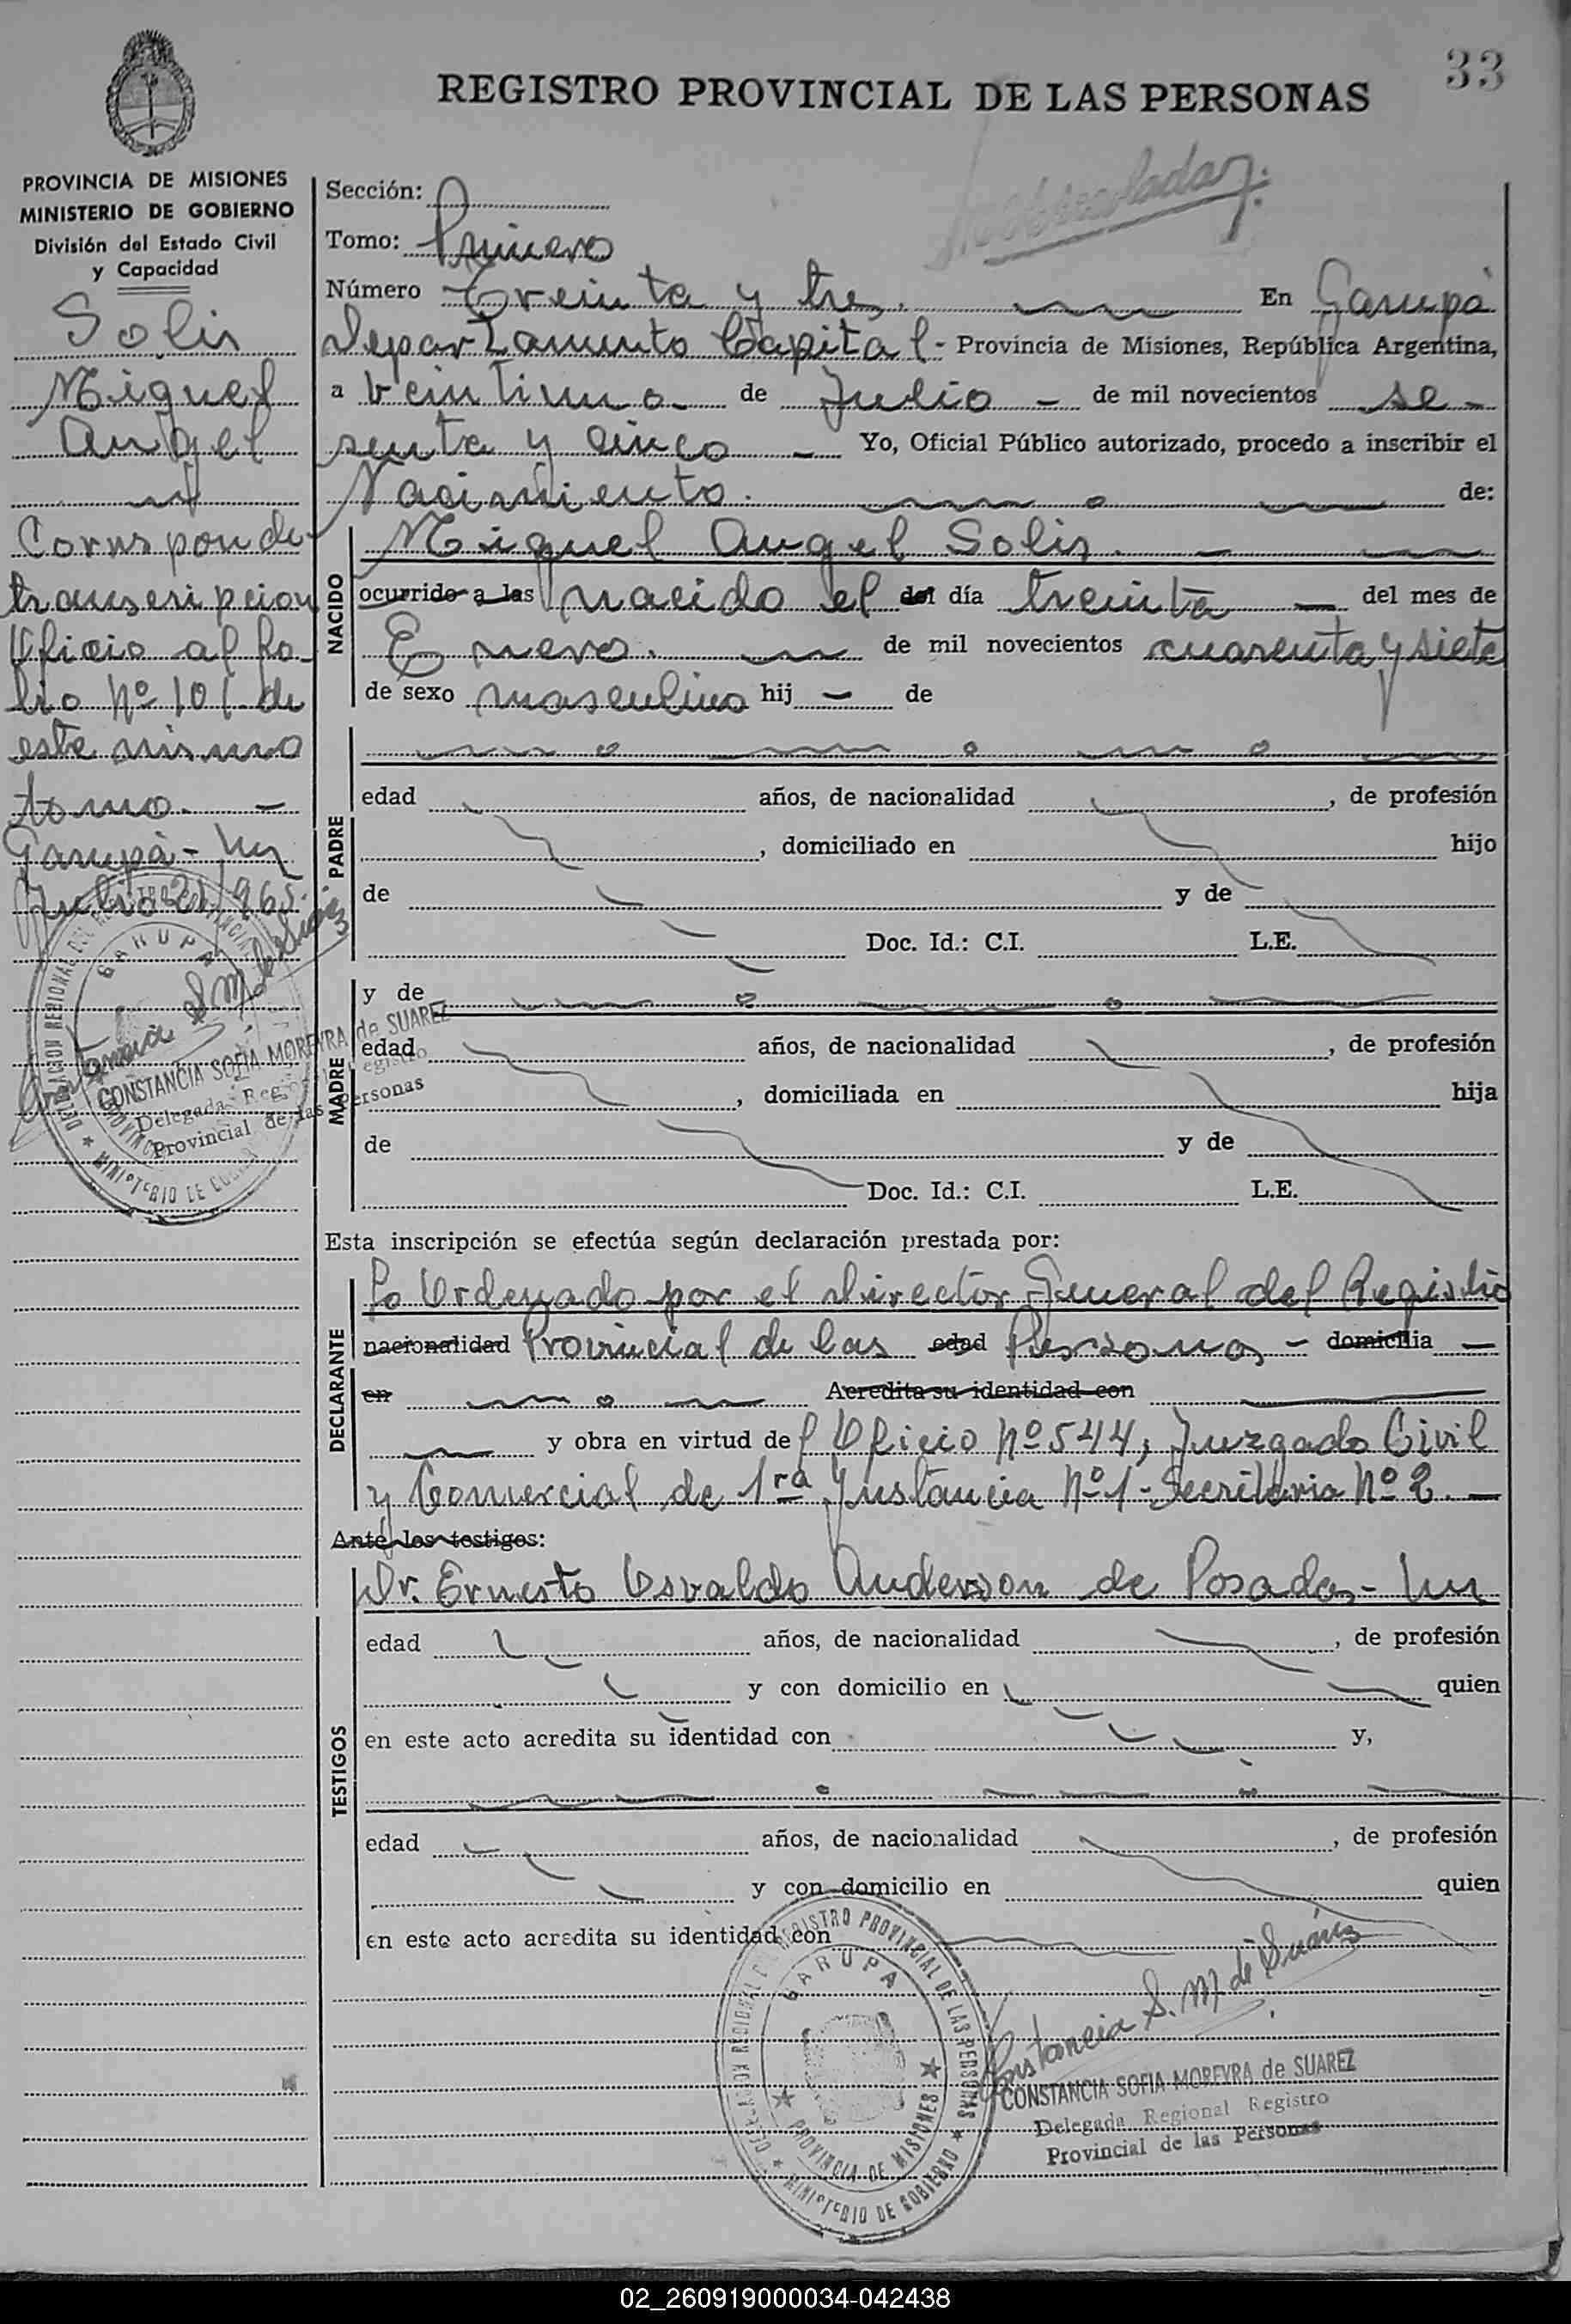 33
REGISTRO PROVINCIAL DE LAS PERSONAS
PROVINCIA DE MISIONES
MINISTERIO DE GOBIERNO
División del Estado Civil
y Capacidad
Solis
Miguel
Angel
Corresponde
transcripcion
Oficio al fo-
lio Nº 101 de
este mismo
tomo. -
Garupá -
Julio 21/965.
CONSTANCIA SOFIA MOREYRA de SUAREZ
Delegada Regional Registro
Provincial de las Personas
Sección:
Tomo: Primero
Número Treinta y tres. En Garupá
Departamento Capital - Provincia de Misiones, República Argentina,
a veintiuno - de Julio - de mil novecientos se-
senta y cinco - Yo, Oficial Público autorizado, procedo a inscribir el
Nacimiento. de:
NACIDO
Miguel Angel Solis. -
ocurrido a las nacido el del día treinta - del mes de
Enero. de mil novecientos cuarenta y siete
de sexo masculino hij - de
PADRE
edad años, de nacionalidad , de profesión
, domiciliado en hijo
de y de
Doc. Id.: C.I. L.E.
MADRE
y de
edad años, de nacionalidad , de profesión
, domiciliada en hija
de y de
Doc. Id.: C.I. L.E.
Esta inscripción se efectúa según declaración prestada por:
DECLARANTE
Lo Ordenado por el Director General del Registro
nacionalidad Provincial de las edad Personas - domicilia -
en Acredita su identidad con
y obra en virtud del Oficio Nº 544, Juzgado Civil
y Comercial de 1ra Instancia Nº 1 - Secretaria Nº 2. -
Ante los testigos:
Dr. Ernesto Osvaldo Anderson de Posadas -
TESTIGOS
edad años, de nacionalidad , de profesión
y con domicilio en quien
en este acto acredita su identidad con y,
edad años, de nacionalidad , de profesión
y con domicilio en quien
en este acto acredita su identidad con
DELEGACION REGIONAL DEL REGISTRO PROVINCIAL DE LAS PERSONAS
GARUPA
PROVINCIA DE MISIONES
MINISTERIO DE GOBIERNO
Constancia S. M. de Suárez
CONSTANCIA SOFIA MOREYRA de SUAREZ
Delegada Regional Registro
Provincial de las Personas
02_260919000034-042438